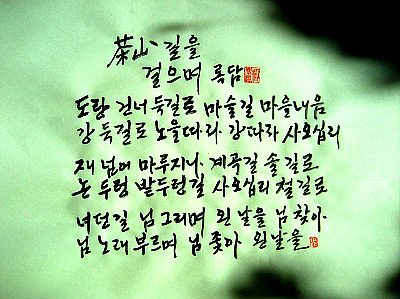 茶山 길을
걸으며 목담
도랑 건너 둑길로 마술길 마을내음
강 둑길로 노을따라 강따라 사오십리
재 넘어 마루지나 계곡길 솔길로
논두렁 밭두렁길 사오십리 철길로
녀던길 님그리며 왼날을 님 찾아
님 노래 부르며 님 좇아 왼날을